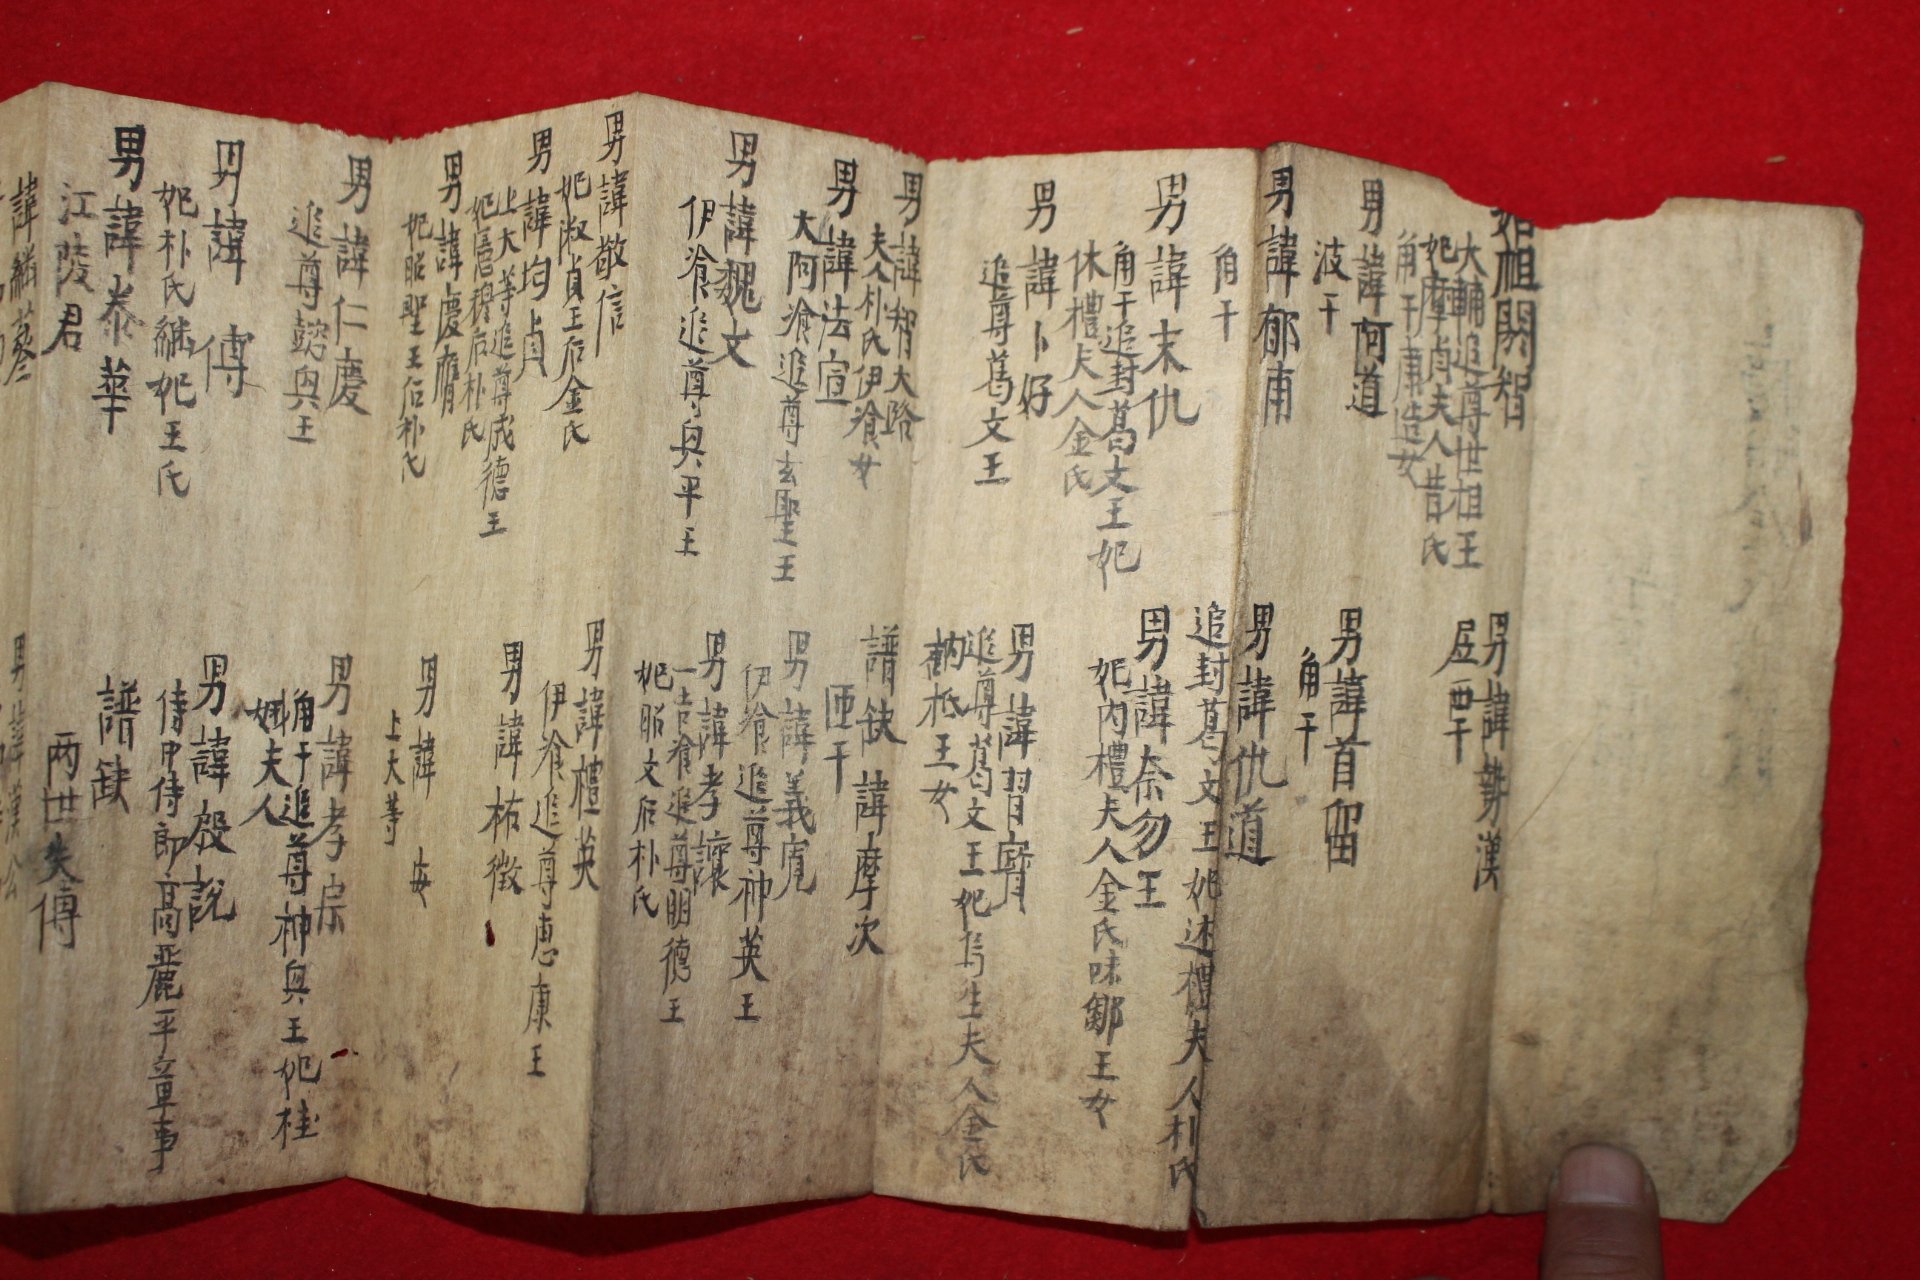 始祖閼智
大輔追尊世祖王
妃摩貞夫人昔氏
角干康造女
男諱勢漢
居西干
男諱阿道
波干
男諱首留
角干
男諱郁甫
角干
男諱仇道
追封葛文王妃述禮夫人朴氏
男諱末仇
角干追封葛文王妃
休禮夫人金氏
男諱奈勿王
妃內禮夫人金氏味鄒王女
男諱卜好
追尊葛文王
男諱習寶
追尊葛文王妃烏生夫人金氏
訥祗王女
男諱智大路
夫人朴氏伊飡女
譜缺 諱摩次
匝干
男諱法宣
大阿飡追尊玄聖王
男諱義寬
伊飡追尊神英王
男諱魏文
伊飡追尊興平王
男諱孝讓
一吉飡追尊明德王
妃昭文后朴氏
男諱敬信
妃淑貞王后金氏
男諱禮英
伊飡追尊惠康王
男諱均貞
上大等追尊成德王
妃憲穆后朴氏
男諱祐徵
男諱慶膺
妃昭聖王后朴氏
男諱 安
上大等
男諱仁慶
追尊懿興王
男諱孝宗
角干追尊神興王妃桂
娥夫人
男諱 傅
妃朴氏繼妃王氏
男諱殷說
侍中侍郎高麗平章事
男諱泰華
江陵君
譜缺
兩世失傳
男諱漢公